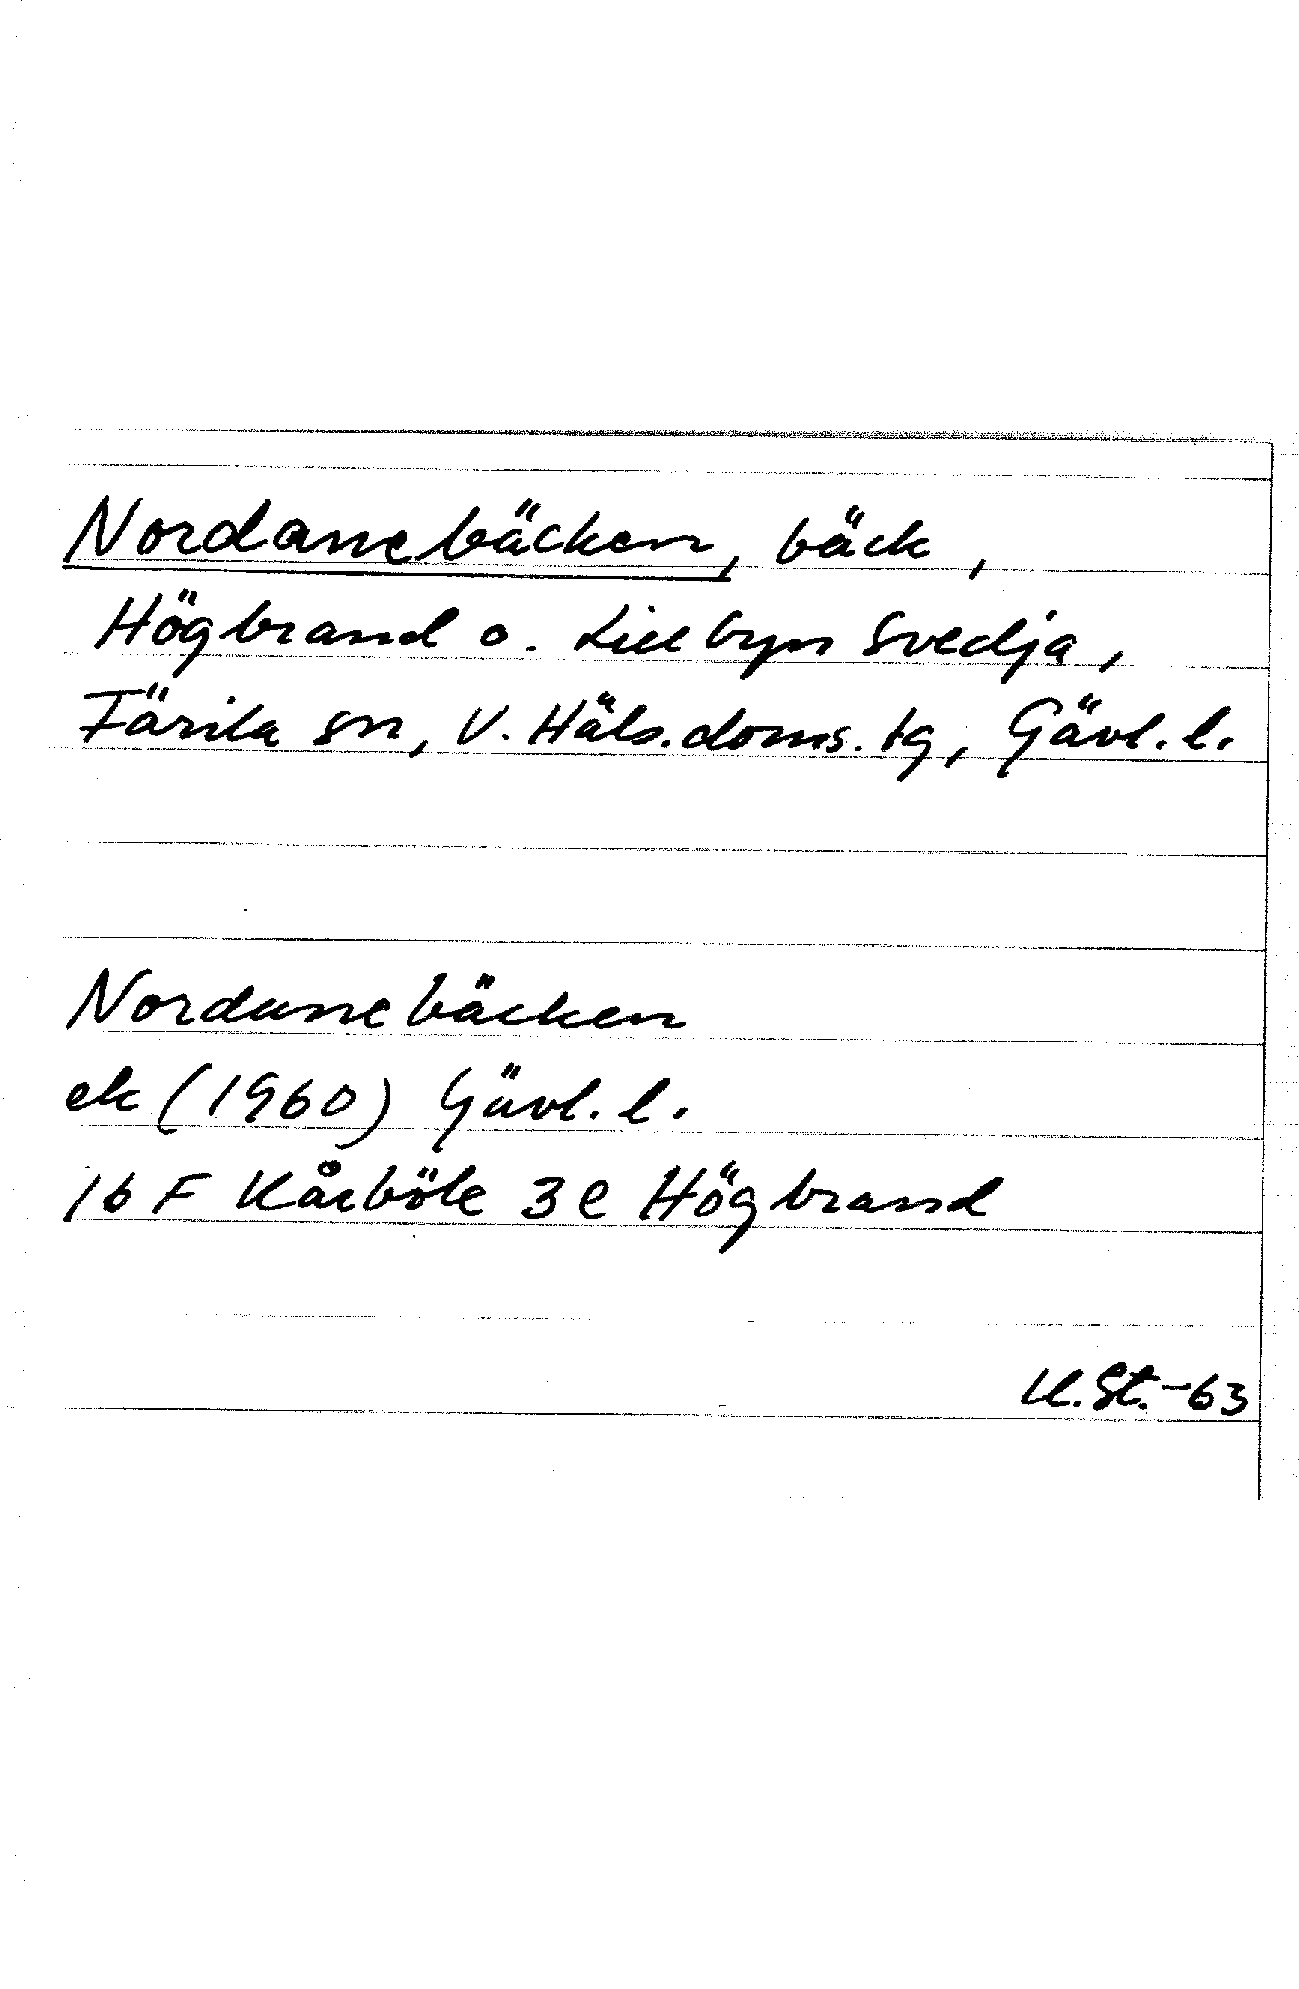 Nordanebäcken, bäck,
Högbrand o. Lillbyn Svedja,
Färila sn, V. Häls. doms. tg, Gävl. l.
Nordanebäcken
ek (1960) Gävl. l.
16 F Kårböle 3 e Högbrand
U. St. -63